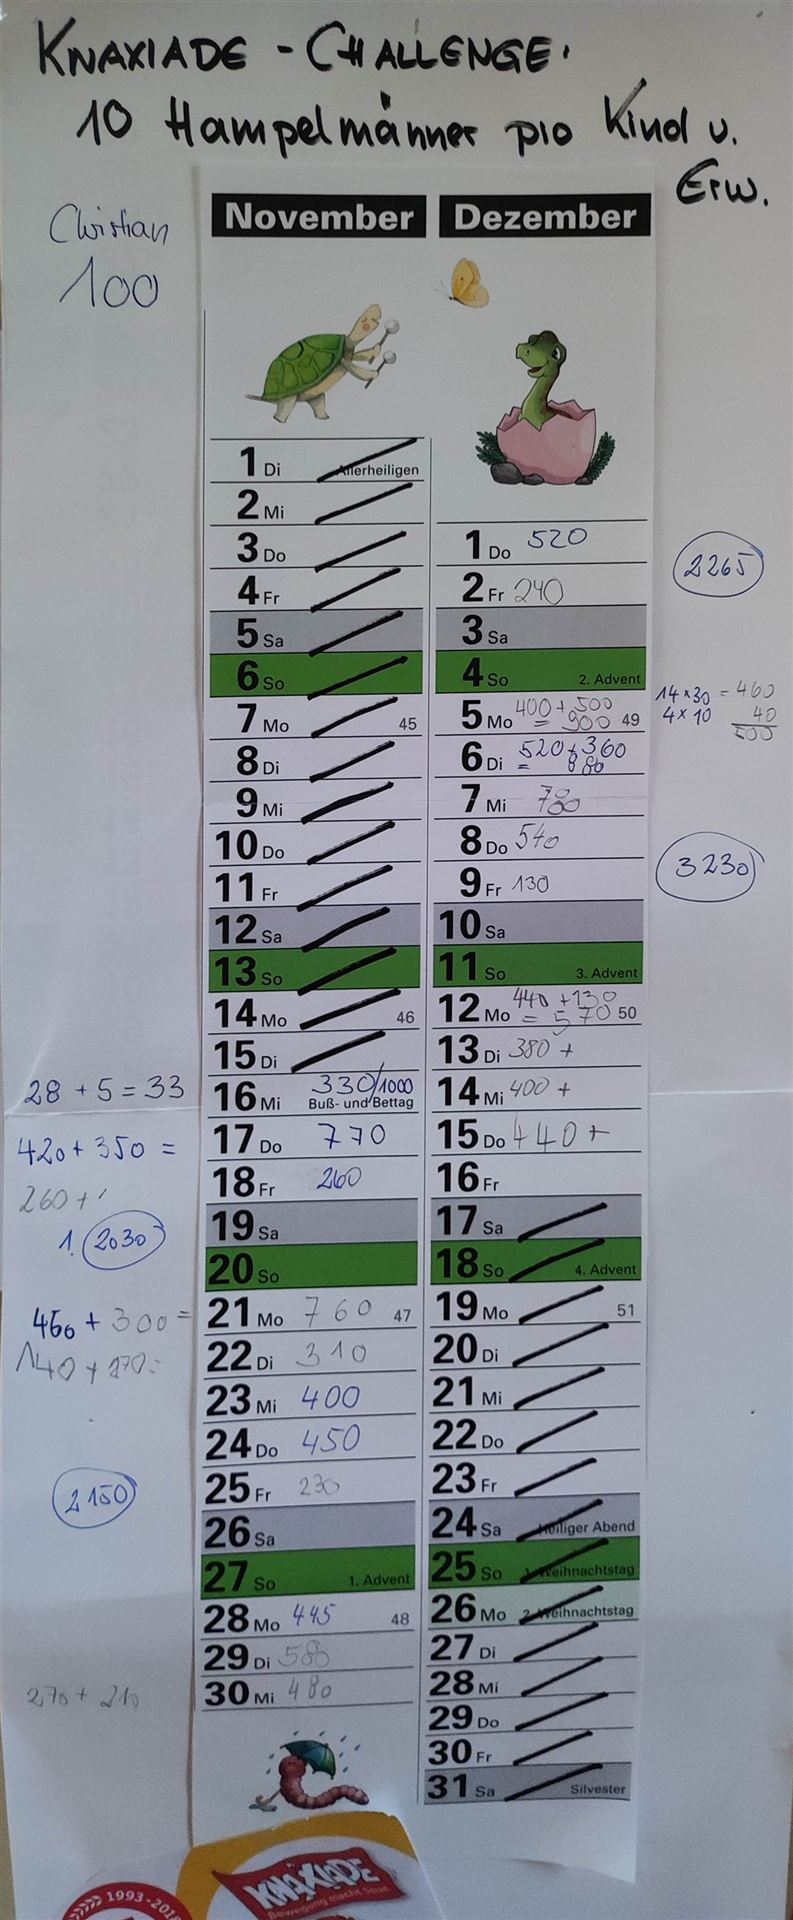 KNAXIADE - CHALLENGE.
10 Hampelmänner pro Kind u.
Erw.
Christian
100
November
1 Di Allerheiligen
2 Mi
3 Do
4 Fr
5 Sa
6 So
7 Mo 45
8 Di
9 Mi
10 Do
11 Fr
12 Sa
13 So
14 Mo 46
15 Di
28 + 5 = 33
16 Mi 330/1000
Buß- und Bettag
420 + 350 =
17 Do 770
260 +
18 Fr 260
1. 2030
19 Sa
20 So
460 + 300 =
21 Mo 760 47
140 + 270 =
22 Di 310
23 Mi 400
24 Do 450
2150
25 Fr 230
26 Sa
27 So 1. Advent
28 Mo 445 48
29 Di 580
270 + 210
30 Mi 480
Dezember
1 Do 520
2265
2 Fr 240
3 Sa
4 So 2. Advent
14 x 30 = 460
4 x 10 40
500
5 Mo 400 + 500
= 900 49
6 Di 520 + 360
= 880
7 Mi 780
8 Do 540
3230
9 Fr 130
10 Sa
11 So 3. Advent
12 Mo 440 + 130
= 570 50
13 Di 380 +
14 Mi 400 +
15 Do 440 +
16 Fr
17 Sa
18 So 4. Advent
19 Mo 51
20 Di
21 Mi
22 Do
23 Fr
24 Sa Heiliger Abend
25 So 1. Weihnachtstag
26 Mo 2. Weihnachtstag
27 Di
28 Mi
29 Do
30 Fr
31 Sa Silvester
1993-2018
KNAXIADE
Bewegung macht Spaß